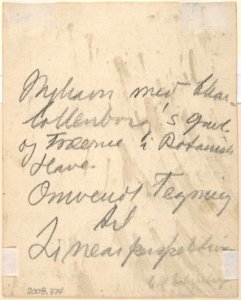 Nyhavn med Char-
lottenborg's Gaard
og Træerne i Botanisk
Have.
Omvendt Tegning
til
Linearperspektiv
2008.374